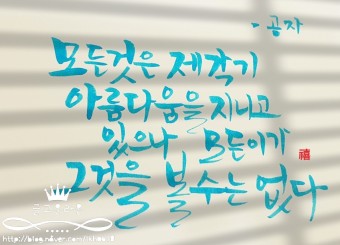 - 공자
모든것은 제각기
아름다움을 지니고
있으나 모든이가
그것을 볼수는 없다
禧